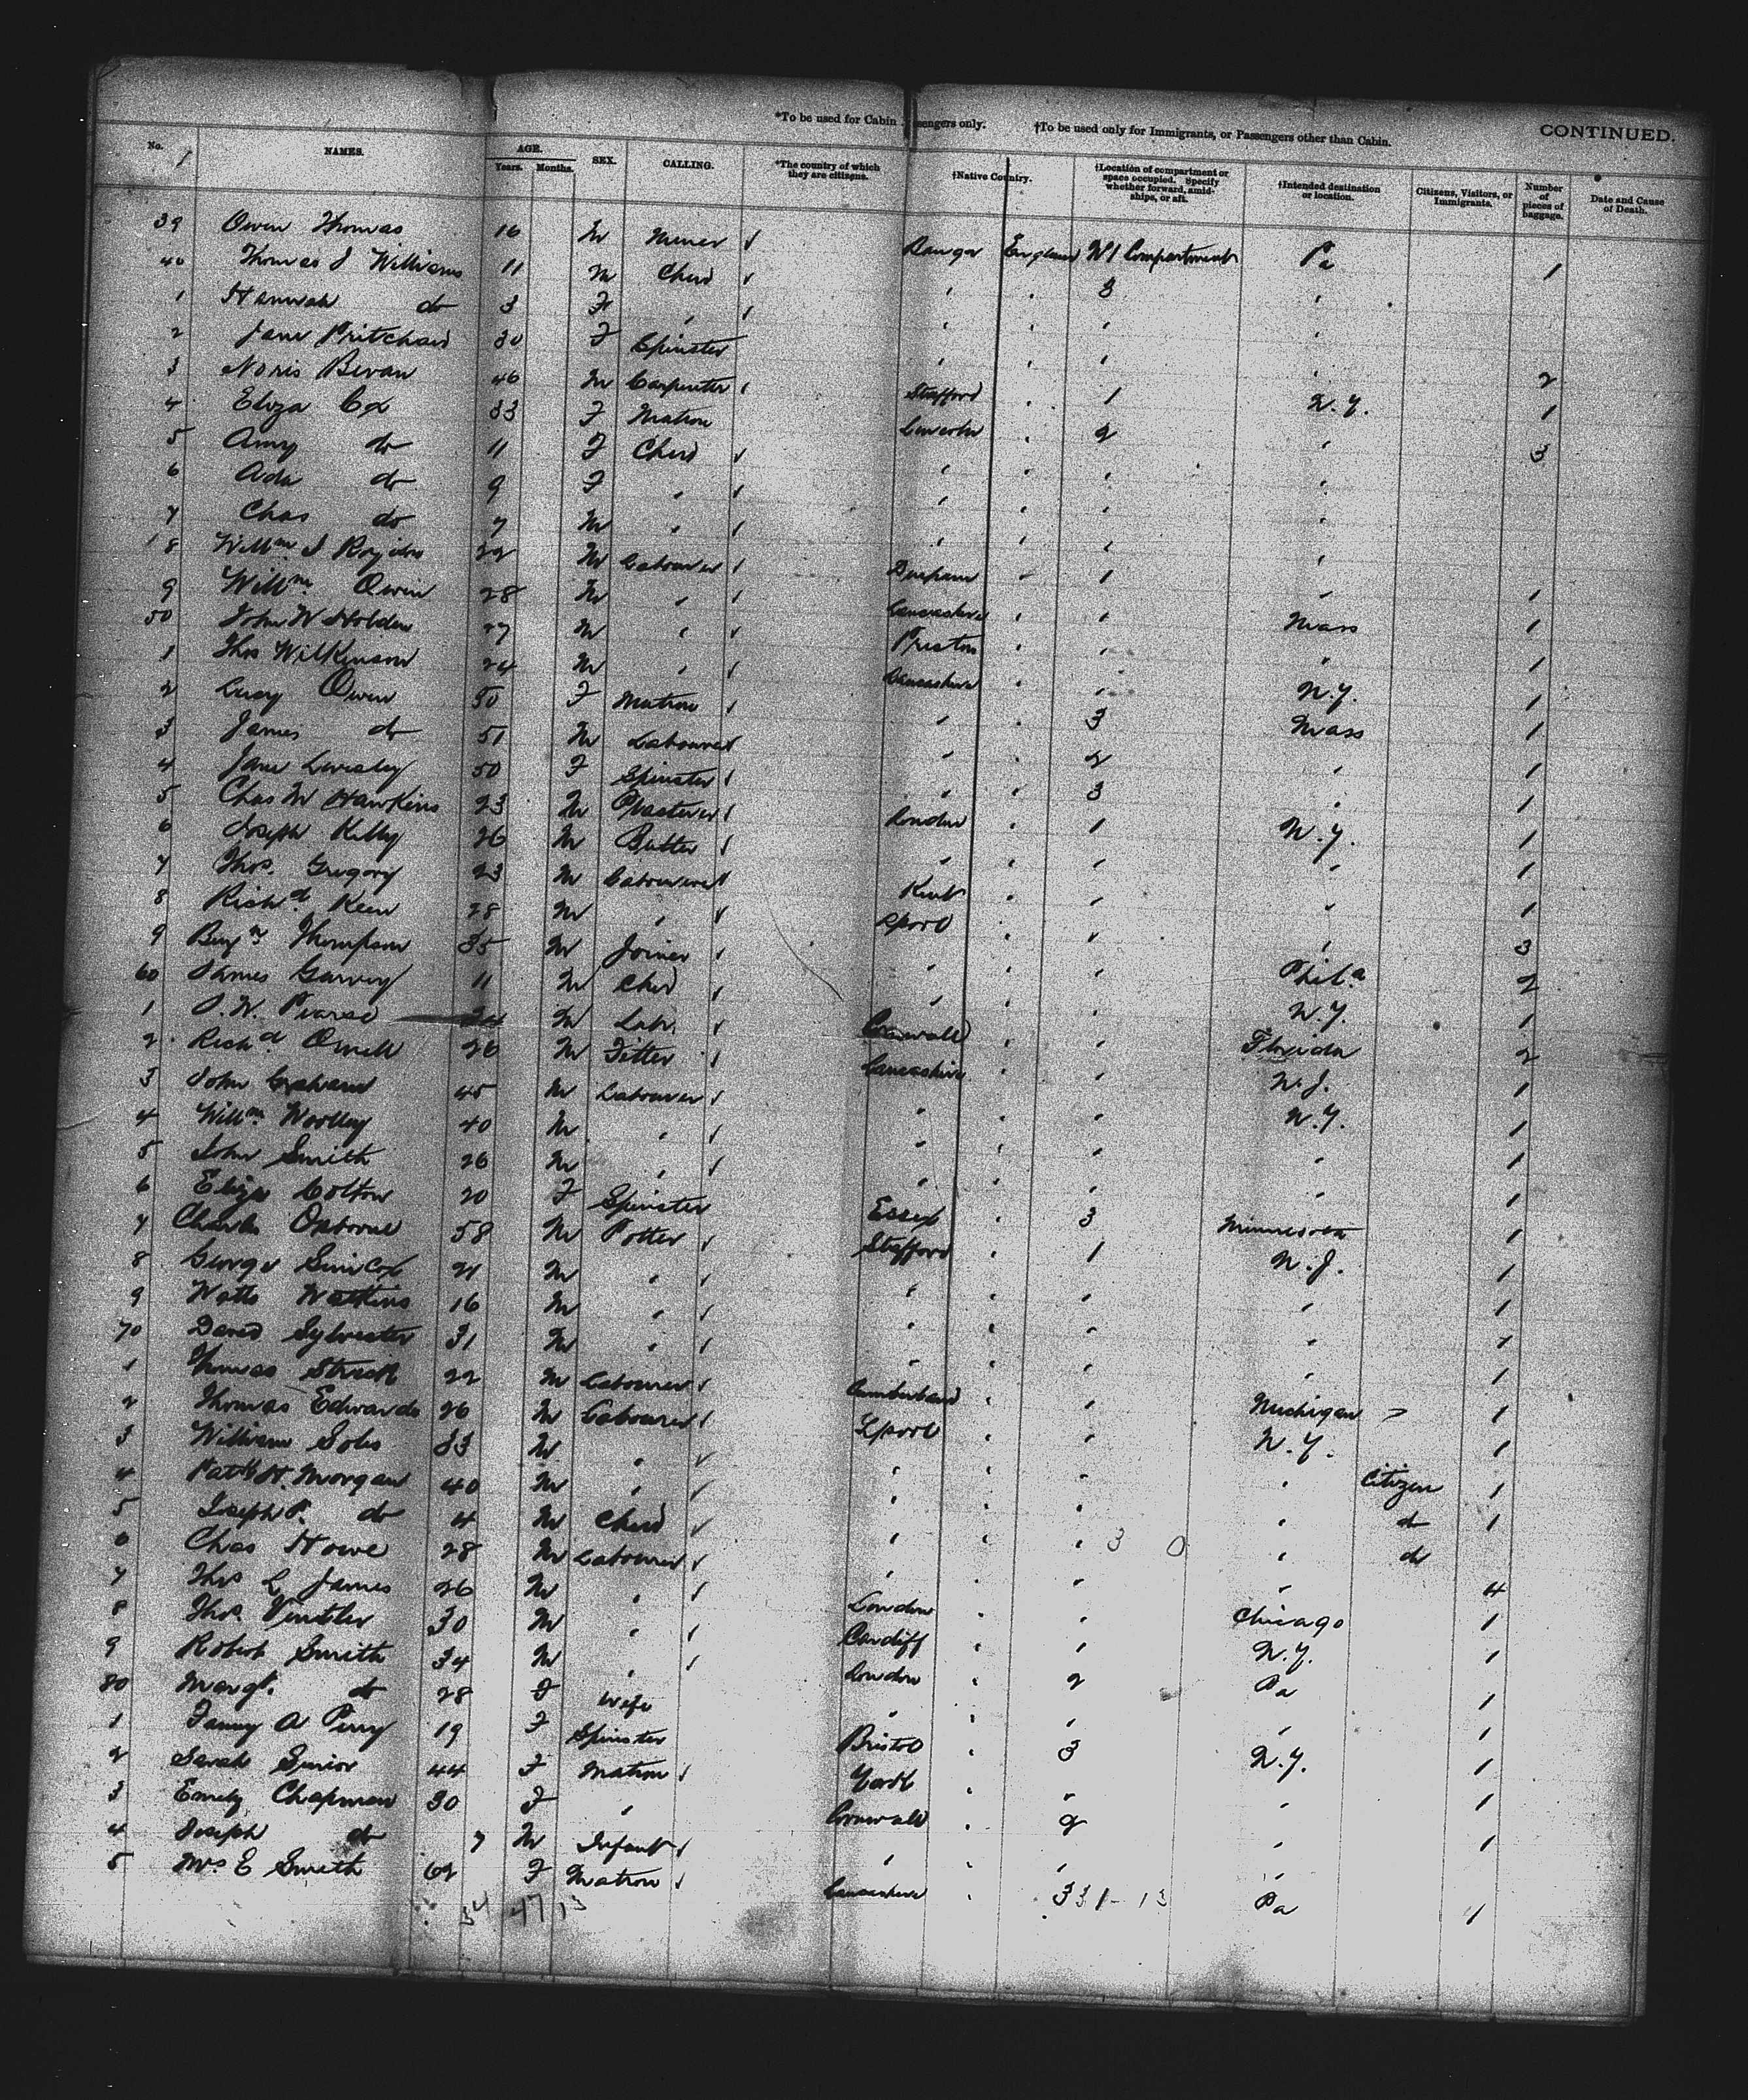 *To be used for Cabin Passengers only. †To be used only for Immigrants, or Passengers other than Cabin. CONTINUED.
No. NAMES. AGE. Years. Months. SEX. CALLING. *The country of which they are citizens. †Native Country. †Location of compartment or space occupied. Specify whether forward, amidships, or aft. †Intended destination or location. Citizens, Visitors, or Immigrants. Number of pieces of baggage. Date and Cause of Death.
39 Owen Thomas 16 M Miner Bangor England No 1 Compartment Pa 1
40 Thomas J Williams 11 M Child " " 3 "
1 Hannah do 3 F " " " " "
2 Jane Pritchard 30 F Spinster " " " " 2
3 Noris Bevan 46 M Carpenter Stafford " 1 N.Y. 1
4 Eliza Cox 33 F Matron Lincoln " 2 " 3
5 Amy do 11 F Child " " " "
6 Ada do 9 F " " " " "
7 Chas do 7 M " " " " "
8 Willm J 22 M Labourer Durham " 1 " 1
9 Willm Owen 28 M " Lancashire " 1 Mass 1
50 John W Holden 27 M " Preston " " " 1
1 Thos Wilkinson 24 M " Lancashire " " N.Y. 1
2 Lucy Owen 50 F Matron " " 3 Mass 1
3 James do 51 M Labourer " " 2 " 1
4 Jane 50 F Spinster " " 3 " 1
5 Chas W Hawkins 23 M Plasterer London " 1 N.Y. 1
6 Joseph Kelly 26 M Butler " " " " 1
7 Thos. Gregory 23 M Labourer Kent " " " 1
8 Richd Keen 28 M " Lpool " " " 3
9 Benjn Thompson 35 M Joiner " " " Phila 2
60 James Garvey 11 M Child " " " N.Y. 1
1 P.W. Pearse 24 M Lab. Cornwall " " Florida 2
2 Richd 26 M Fitter Lancashire " " N.J. 1
3 John Graham 45 M Labourer " " " N.Y. 1
4 Willm Woolley 40 M " " " " " 1
5 John Smith 26 M " " " " " 1
6 Eliza Colton 20 F Spinster Essex " 3 Minnesota 1
7 Charles Osborne 58 M Potter Stafford " 1 N.J. 1
8 George Simcox 21 M " " " " " 1
9 Watts Watkins 16 M " " " " " 1
70 David Sylvester 31 M " " " " " 1
1 Thomas 22 M Labourer Cumberland " " Michigan 1
2 Thomas Edwards 26 M Labourer Lpool " " N.Y. 1
3 William Soles 33 M " " " " " Citizen 1
4 Patk H. Morgan 40 M " " " " " do 1
5 Joseph P. do 4 M Child " " " " do
6 Chas Howe 28 M Labourer " " " " 4
7 Thos L James 26 M " London " " Chicago 1
8 Thos. 30 M " Cardiff " 1 N.Y. 1
9 Robert Smith 34 M " London " 2 Pa 1
80 Margt. do 28 F Wife " " " " 1
1 Fanny A Perry 19 F Spinster Bristol " 3 N.Y. 1
2 Sarah Senior 44 F Matron York " " " 1
3 Emily Chapman 30 F " Cornwall " 2 " 1
4 Joseph do 7 M Infant " " " "
5 Mrs E Smith 62 F Matron Lancashire " 3 Pa 1
34 47 13